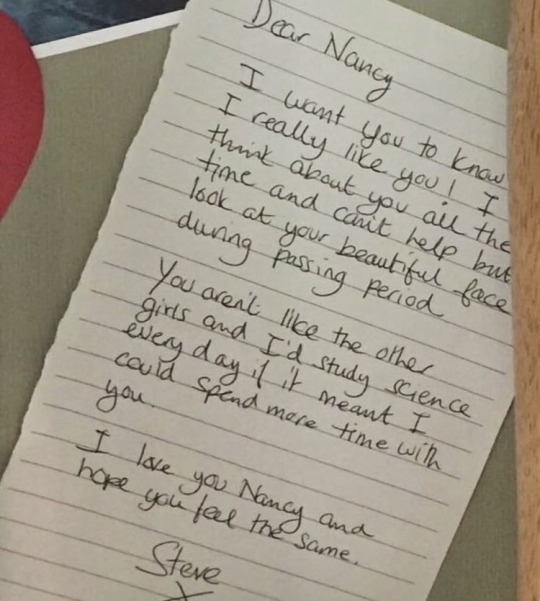 Dear Nancy
I want you to know
I really like you! I
think about you all the
time and can't help but
look at your beautiful face
during passing period
You aren't like the other
girls and I'd study science
every day if it meant I
could spend more time with
you.
I love you Nancy and
hope you feel the same.
Steve
X